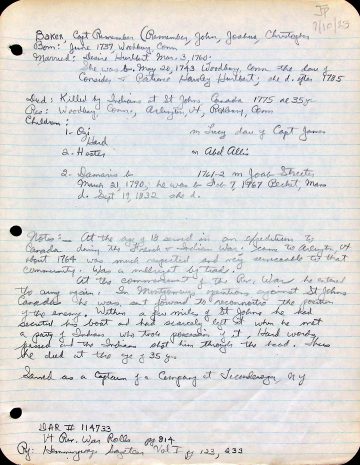 JP
7/10/83
Baker, Capt Remember (Remember, John, Joshua, Christopher
Born: June 1737, Woodbury Conn
Married: Desire Hurlbut Mar. 3, 1760:
She was b. May 20, 1743 Woodbury, Conn the dau of
Consider & Patience Hawley Hurlbut; she d. after 1785
Died: Killed by Indians at St Johns Canada 1775 ae 35 yr
Res: Woodbury Conn., Arlington, Vt, Roxbury, Conn
Children:
1- Ozi m Lucy dau of Capt James
Hard
2. Hester m Abel Allis
2- Damaris b 1761-2 m Joab Streeter
March 21, 1790, he was b Feb 7, 1767 Becket, Mass
d. Sept 19, 1832 she d.
Notes:- At the age of 18 served in an expedition to
Canada during the French & Indian War. Came to Arlington Vt
about 1764 was much respected and very serviceable to that
community. Was a millwright by trade.
At the commencement of the Rev. War he entered
the army again. In Montgomery's expedition against St Johns
Canada he was sent forward to reconnoitre the position
of the enemy. Within a few miles of St Johns he had
secreted his boat and had scarcely left it when he met
a party of Indians who took possession of it. Hard words
passed and the Indians shot him through the head. Thus
he died at the age of 35 yr.
Served as a Captain of a Company at Ticonderoga, N Y
DAR # 114733
Vt Rev. War Rolls pg 814
Rg: Hemmingway Gazetteer Vol I pg 123, 233